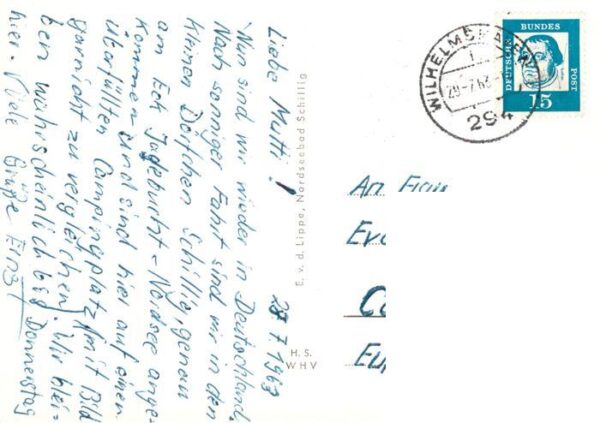 28 7 1963
Liebe Mutti!
Nun sind wir wieder in Deutschland.
Nach sonniger Fahrt sind wir in den
kleinen Dörfchen Schillig, genau
am Eck Jadebucht - Nordsee ange=
kommen und sind hier auf einen
überfüllten Campingplatz (mit Bild
garnicht zu vergleichen). Wir blei=
ben wahrscheinlich bis Donnerstag
hier. Viele Grüße Ernst
E. v. d. Lippe, Nordseebad Schillig
H. S.
WHV
WILHELMSHAVEN
294
DEUTSCHE
BUNDES
POST
15
An Frau